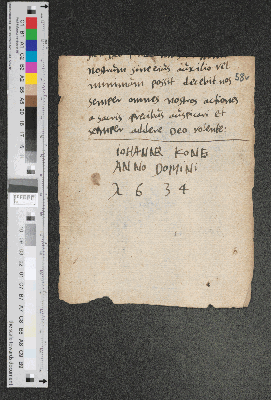 nostrum sine eius auxilio vel
minimum possit decebit nos
semper omnes nostras actiones
a sacris precibus auspicari et
semper addere Deo volente:
IOHANNE KONG
ANNO DOMINI
1 6 3 4